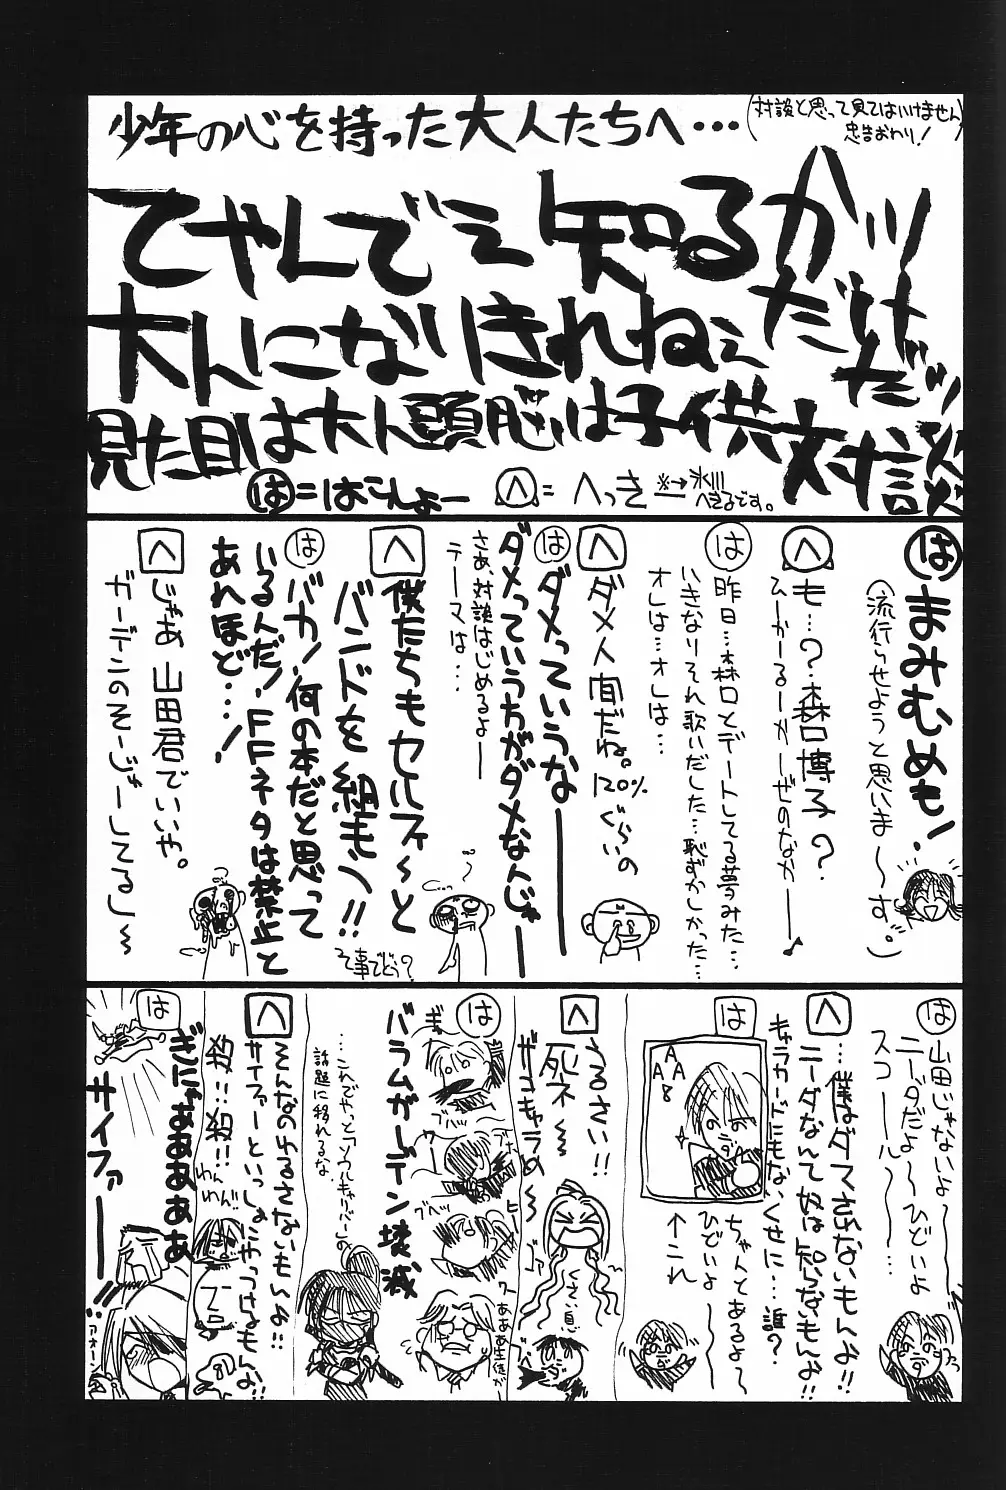 少年の心を持った大人たちへ・・・
(対談と思って見てはいけません
忠告おわり!)
てやんでぇ知るかッ
大人になりきれねぇ
だけだッ
見た目は大人頭脳は子供対談
は=はこんよー
へ=へっき
※→氷川へきるです。
は まみむめも!
(流行らせようと思いま〜す。)
へ も…?森口博子?
ひーかーるーかーぜのなかー♪
は 昨日…森口とデートしてる夢みた…
いきなりそれ歌いだした…恥ずかしかった…
オレは…オレは…
へ ダメ人間だね。120%ぐらいの
は ダメっていうなー
ダメっていう方がダメなんじゃー
さあ、対談はじめるよー
テーマは…
へ 僕たちもセルフィ〜と
バンドを組もう!!
て事でどう?
は バカ!何の本だと思って
いるんだ!FFネタは禁止と
あれほど…!
へ じゃあ山田君でいいや。
ガーデンのそーじゅーしてるし〜
は 山田じゃないよ〜
ニーダだよ〜ひどいよ
スコール〜…
へ …僕はダマされないもんよ!!
ニーダなんて奴は知らないもんよ!!
キャラカードにもないくせに…誰?
は
A
A A
8
↑これ
ちゃんとあるよ〜
ひどいよ〜
へ うるさい!!
死ネ〜
ザコキャラめ〜
は バラムガーデン壊滅
…これでやっとソウルキャリバーの
話題に移れるな
へ そんなのゆるさないもんよ!!
サイファーといっしょにやっつけるもんよ!!
わんわん!
は ぎにゃああああぁ
サイファー――!!